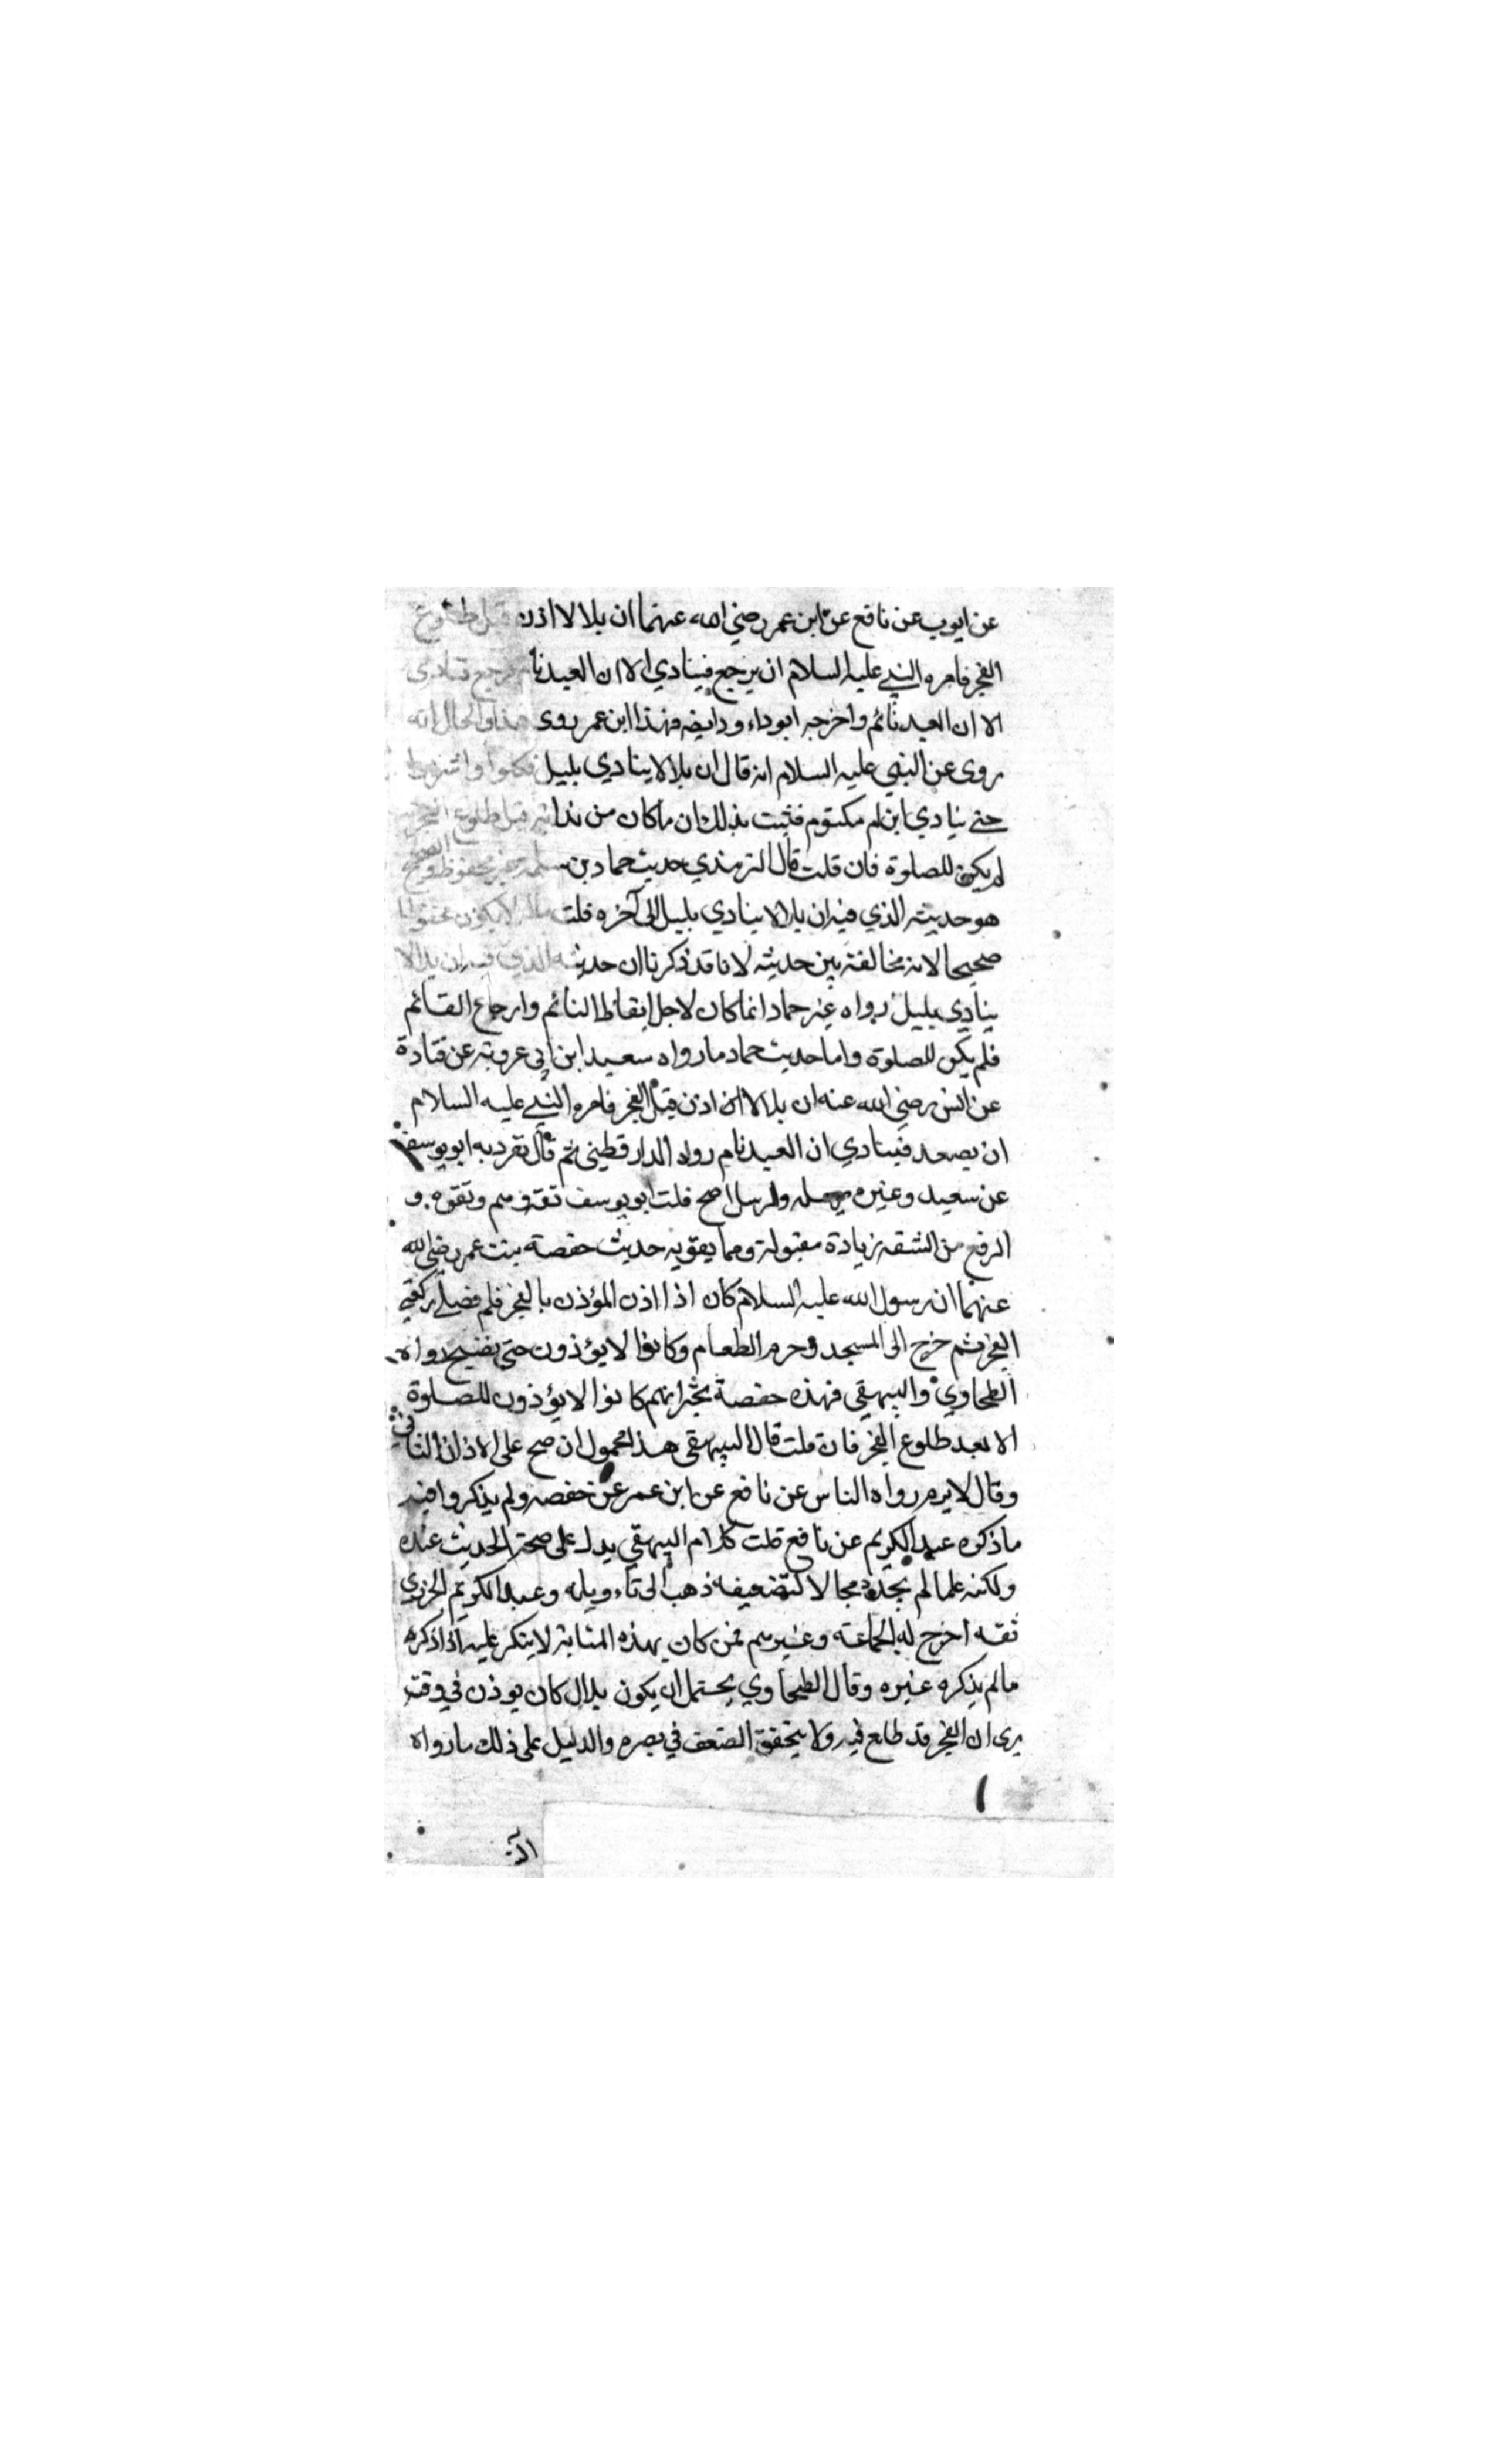 عن ايوب عن نافع عن ابن عمر رضي الله عنهما ان بلالا اذن قبل طلوع
الفجر فامره النبي عليه السلام ان يرجع فينادي الا ان العبد نام فرجع فنادى
الا ان العبد نائم واخرجه ابو داود ايضه فهذا ابن عمر روى هذا والحال انه
روى عن النبي عليه السلام انه قال ان بلالا ينادي بليل فكلوا واشربوا
حتى ينادي ابن ام مكتوم فثبت بذلك ان ما كان من ندائه قبل طلوع الفجر
لم يكن للصلوة فان قلت قال الترمذي حديث حماد بن سلمة غير محفوظ والصحيح
هو حديثه الذي فيه ان بلالا ينادي بليل الى آخره قلت ماله لا يكون محفوظا
صحيحا لانه مخالفة بين حديثه لانا قد ذكرنا ان حديثه الذي فيه ان بلالا
ينادي بليل رواه غير حماد انما كان لاجل ايقاظ النائم وارجاع القائم
فلم يكن للصلوة واما حديث حماد ما رواه سعيد ابن ابي عروبة عن قتادة
عن انس رضي الله عنه ان بلالا اذن قبل الفجر فامره النبي عليه السلام
ان يصعد فينادي ان العبد نام رواه الدارقطني ثم قال تفرد به ابو يوسف
عن سعيد وغيره يرسله والمرسل اصح قلت ابو يوسف ثقة وهم وثقوه و
الرفع من الثقة زيادة مقبولة ومما يقويه حديث حفصة بنت عمر رضي الله
عنهما ان رسول الله عليه السلام كان اذا اذن المؤذن بالفجر قام فصلى ركعتي
الفجر ثم خرج الى المسجد وحرم الطعام وكانوا لا يؤذون حتى يصبح رواه
الطحاوي والبيهقي فهذه حفصة تخبر انهم كانوا لا يؤذون للصلوة
الا بعد طلوع الفجر فان قلت قال البيهقي هذا محمول ان صح على الاذان الثاني
وقال لايرم رواه الناس عن نافع عن ابن عمر عن حفصة ولم يذكروا فيه
ما ذكره عبد الكريم عن نافع قلت كلام البيهقي يدل على صحة الحديث عنده
ولكنه لما لم يجد مجالا لتضعيفه ذهب الى تاءويله وعبد الكريم الجزري
ثقه اخرج له الجماعة وغيرهم فمن كان بهذه المثابة لا ينكر عليه اذا ذكره
ما لم يذكره غيره وقال الطحاوي يحتمل ان يكون بلال كان يوذن في وقت
يرى ان الفجر قد طلع فيه ولا يتحقق الضعف في بصره والدليل على ذلك ما رواه